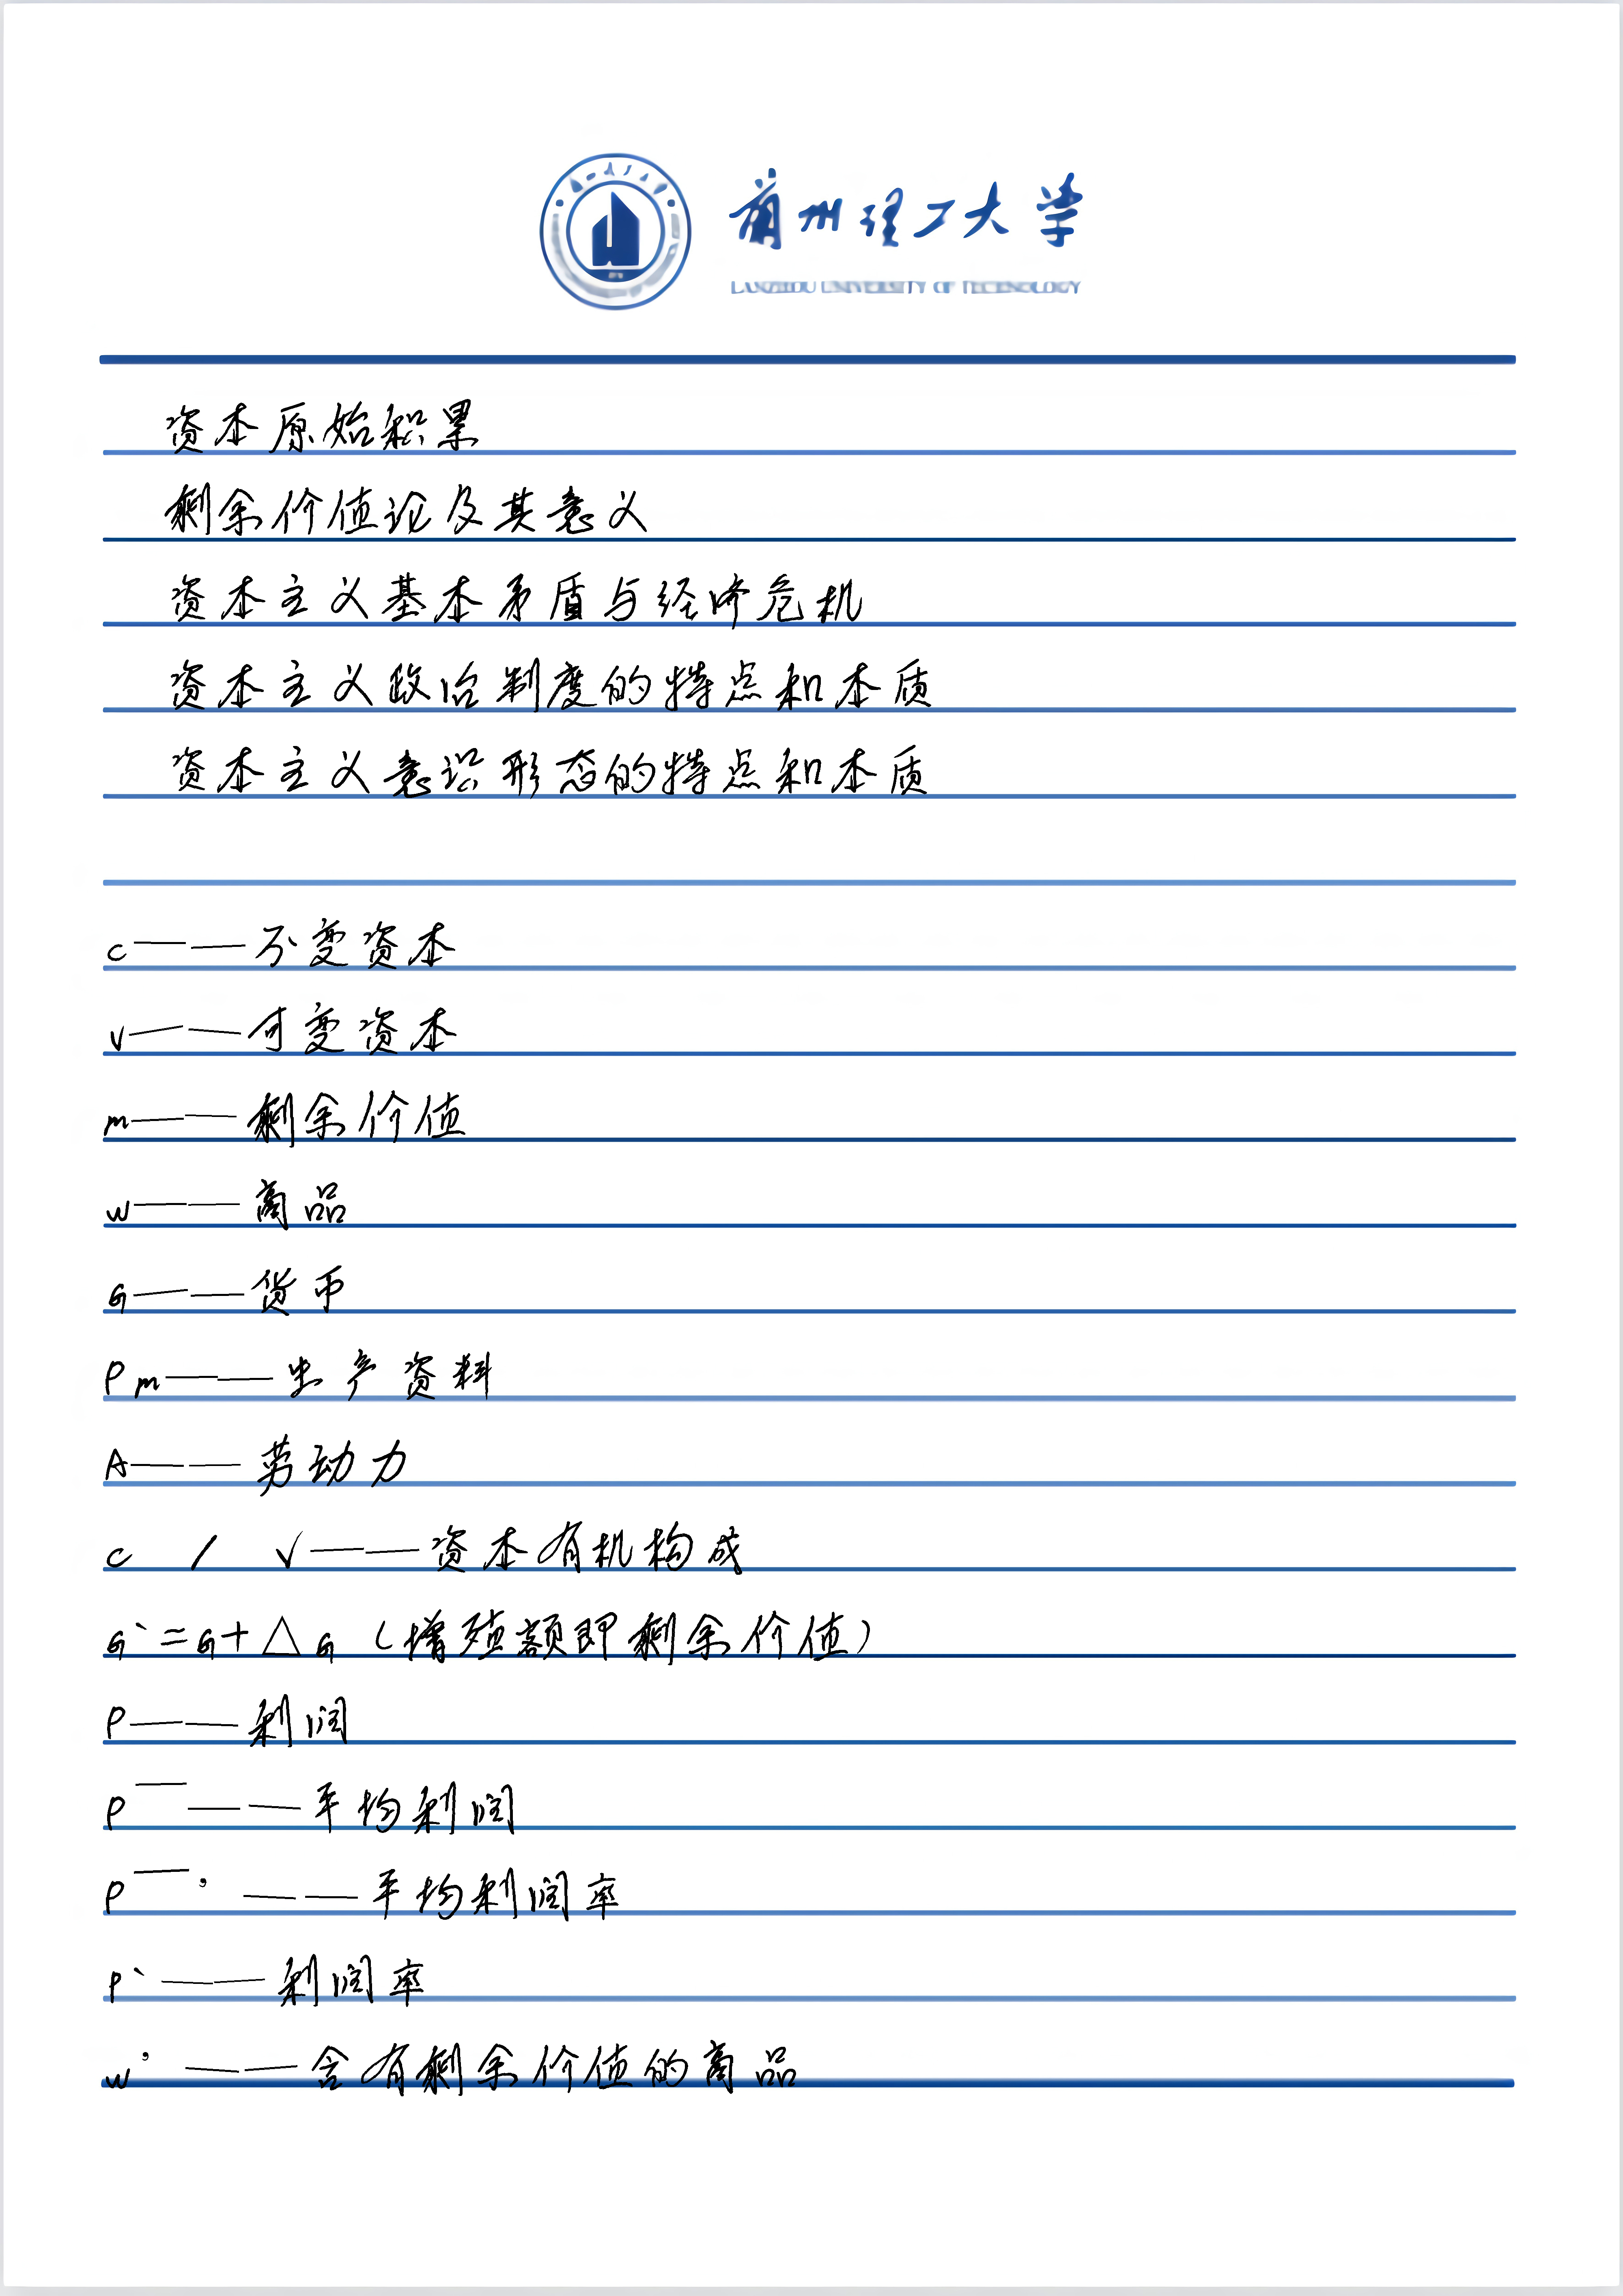 兰州理工大学
LANZHOU UNIVERSITY OF TECHNOLOGY
资本原始积累
剩余价值论及其意义
资本主义基本矛盾与经济危机
资本主义政治制度的特点和本质
资本主义意识形态的特点和本质
c——不变资本
v——可变资本
m——剩余价值
w——商品
G——货币
Pm——生产资料
A——劳动力
c / v——资本有机构成
G`=G+△G（增殖额即剩余价值）
P——利润
P¯——平均利润
P¯’——平均利润率
P`——利润率
w’——含有剩余价值的商品